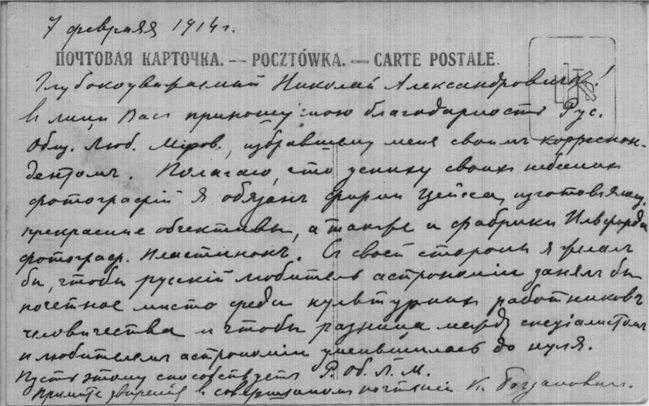 7 февраля 1914 г.
ПОЧТОВАЯ КАРТОЧКА. — POCZTÓWKA. — CARTE POSTALE.
Глубокоуважаемый Николай Александрович!
В лице Вас приношу мою благодарность Рус.
Общ. Люб. Міров., избравшему меня своимъ корреспон-
дентомъ. Полагаю, что успѣху своихъ небесных
фотографій я обязанъ фирмѣ Цейсса, изготовляющ.
прекрасные объективы, а также и фабрикѣ Ильфорда
фотограф. пластинокъ. Съ своей стороны я желалъ
бы, чтобы русскій любитель астрономіи занялъ бы
почетное мѣсто среди культурныхъ работниковъ
человѣчества и чтобы разница между спеціалистомъ
и любителемъ астрономіи уменьшилась до нуля.
Пусть этому способствуетъ Р. Об. Л. М.
Примите увѣренія в совершенномъ почтеніи К. Богданович.